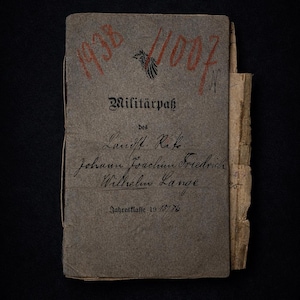 1938 11007
Militärpaß
des
Landst.
Johann Joachim Friedrich
Wilhelm Lange
Jahresklasse 19